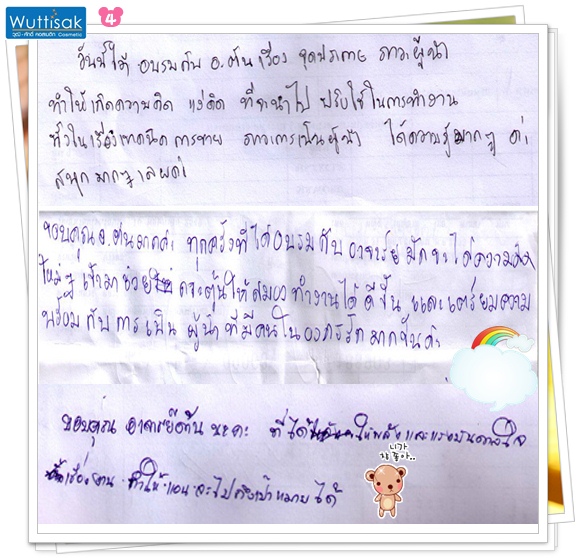 Wuttisak
วุฒิ-ศักดิ์ คอสเมติก Cosmetic
4
วันนี้ได้ อบรมกับ อ.ต้น เรื่อง จุดประกาย ภาวะผู้นำ
ทำให้เกิดความคิด แง่คิด ที่จะนำไป ปรับใช้ในการทำงาน
ทั้งในเรื่องเทคนิค การขาย ภาวะการเป็นผู้นำ ได้ความรู้มากๆ ค่ะ
สนุกมากๆ เลยค่ะ
ขอบคุณ อ.ต้นมากค่ะ ทุกครั้งที่ได้อบรมกับ อาจารย์ มักจะได้ความคิด
ใหม่ๆ เข้ามาช่วย กระตุ้นให้สมอง ทำงานได้ ดีขึ้น และเตรียมความ
พร้อม กับการ เป็น ผู้นำ ที่มีคนในองค์กรรักมากขึ้นค่ะ
ขอบคุณ อาจารย์ต้น นะคะ ที่ได้ ให้พลัง และแรงบันดาลใจ
เรื่องงาน ทำให้ แอน จะไปถึงเป้าหมาย ได้
니가
참 좋아..